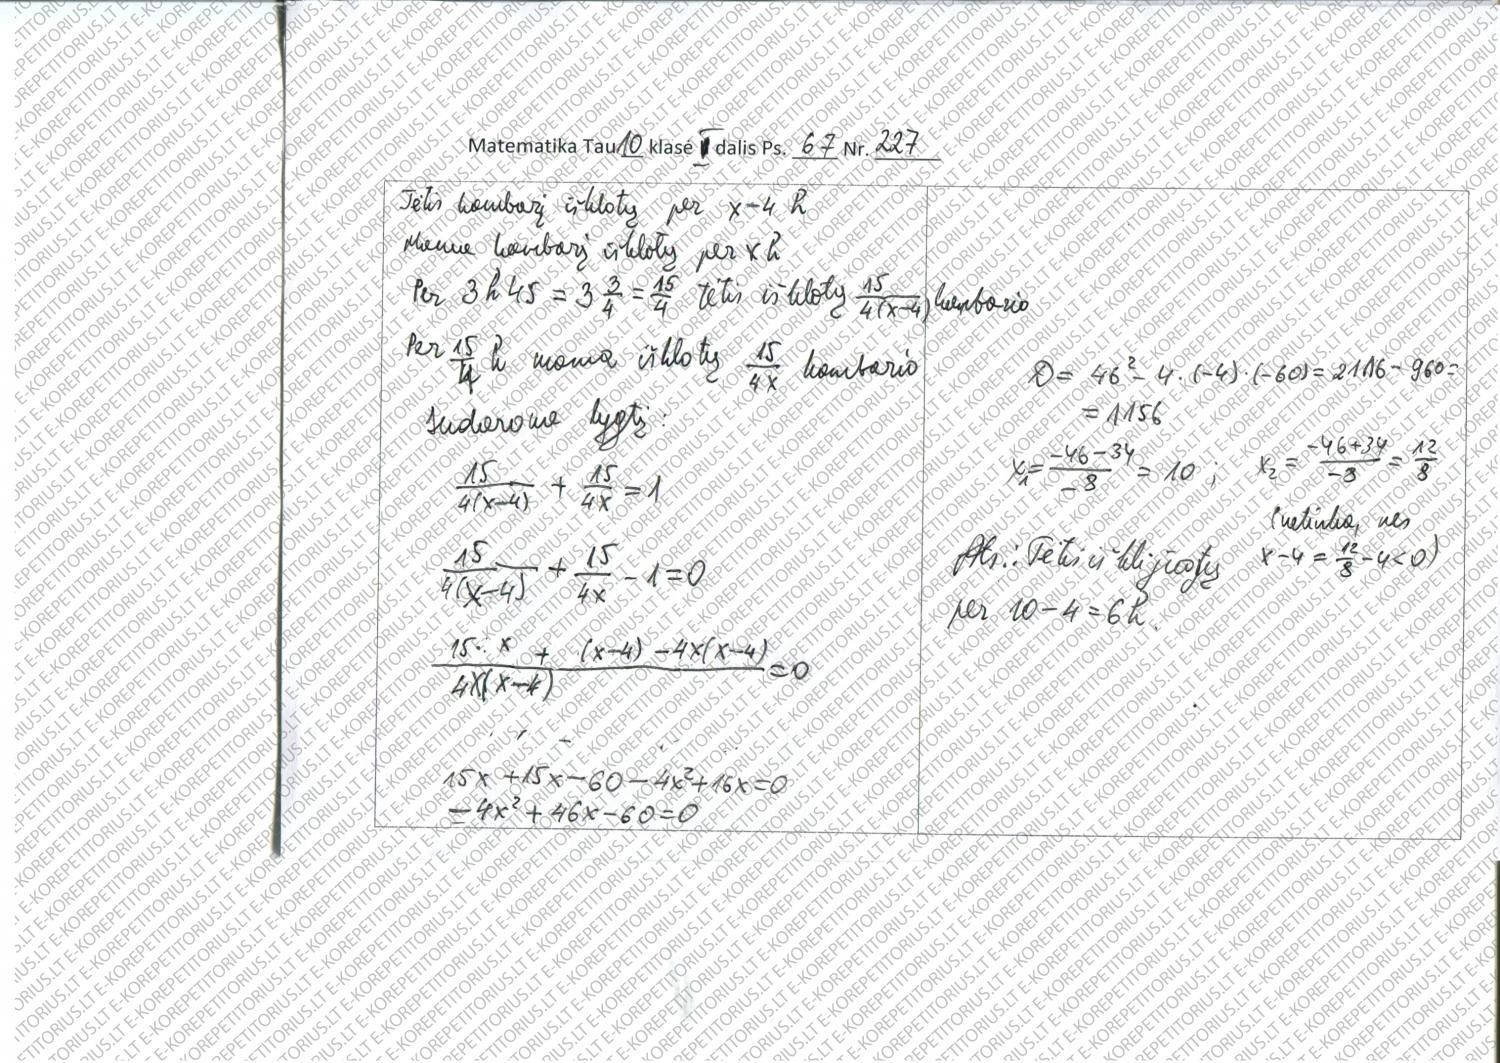 Matematika Tau 10 klasė I dalis Ps. 67 Nr. 227
Tėtis kambarį išklotų per x-4 h
Mama kambarį išklotų per x h
Per 3 h 45 = 3 3/4 = 15/4 tėtis išklotų 15/4(x-4) kambario
Per 15/4 h mama išklotų 15/4x kambario
Sudarome lygtį:
15/4(x-4) + 15/4x = 1
15/4(x-4) + 15/4x - 1 = 0
15· x + (x-4) - 4x(x-4) / 4x(x-4) = 0
15x + 15x - 60 - 4x² + 16x = 0
- 4x² + 46x - 60 = 0
D = 46² - 4 · (-4) · (-60) = 2116 - 960 =
= 1156
x₁ = -46-34/-8 = 10 ; x₂ = -46+34/-8 = 12/8
(netinka, nes
x-4 = 12/8 - 4 < 0)
Ats.: Tėtis išklijuotų
per 10-4 = 6 h.
E-KOREPETITORIUS.LT